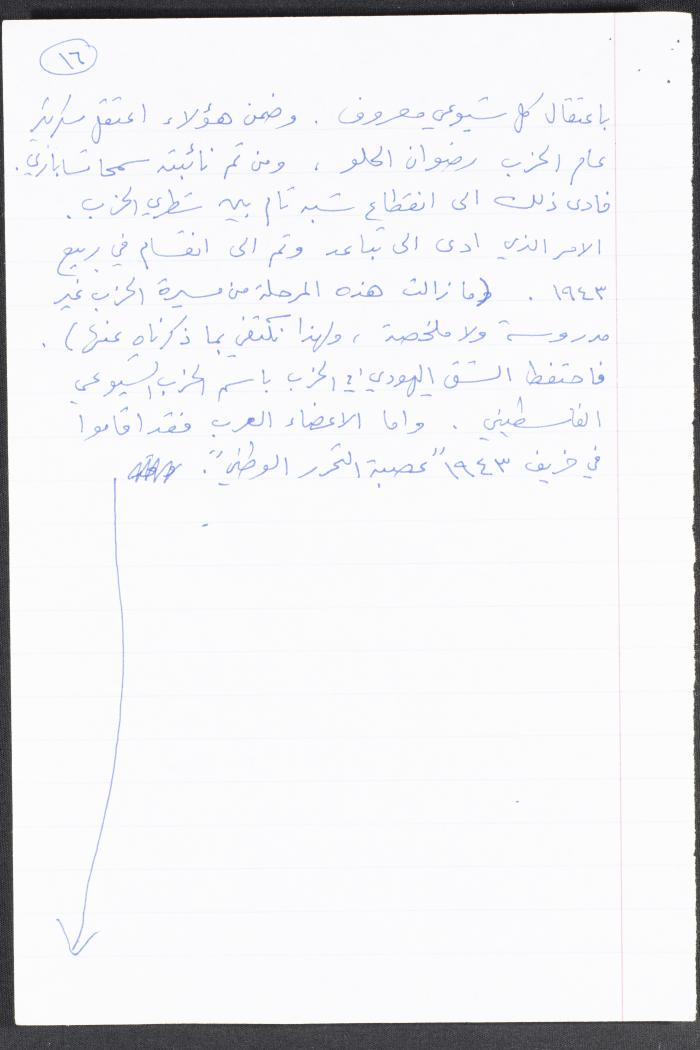 ١٦
باعتقال كل شيوعي معروف . وضمن هؤلاء اعتقل سكرتير
عام الحزب رضوان الحلو ، ومن ثم نائبته سمحا تساباري .
فادى ذلك الى انقطاع شبه تام بين شطري الحزب .
الامر الذي ادى الى تباعد وثم الى انقسام في ربيع
١٩٤٣ . (ما زالت هذه المرحلة من مسيرة الحزب غير
مدروسة ولا ملخصة ، ولهذا نكتفي بما ذكرناه عنها) .
فاحتفظ الشق اليهودي في الحزب باسم الحزب الشيوعي
الفلسطيني . واما الاعضاء العرب فقد اقاموا
في خريف ١٩٤٣ "عصبة التحرر الوطني" .